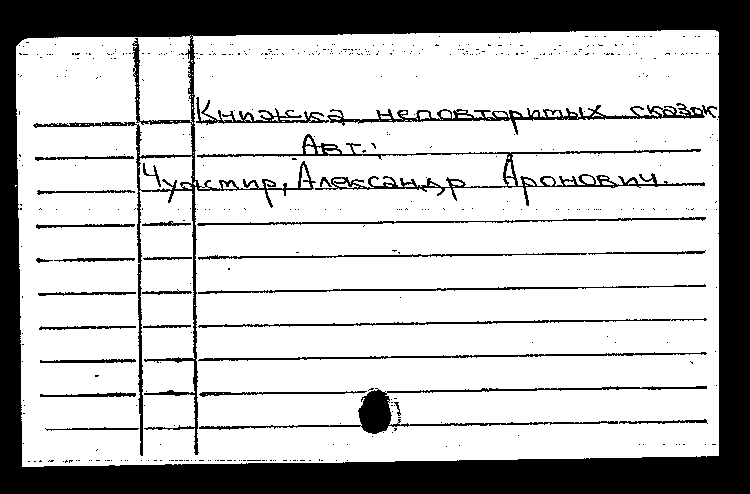 Книжка неповторимых сказок
Авт.:
Александр Аронович.